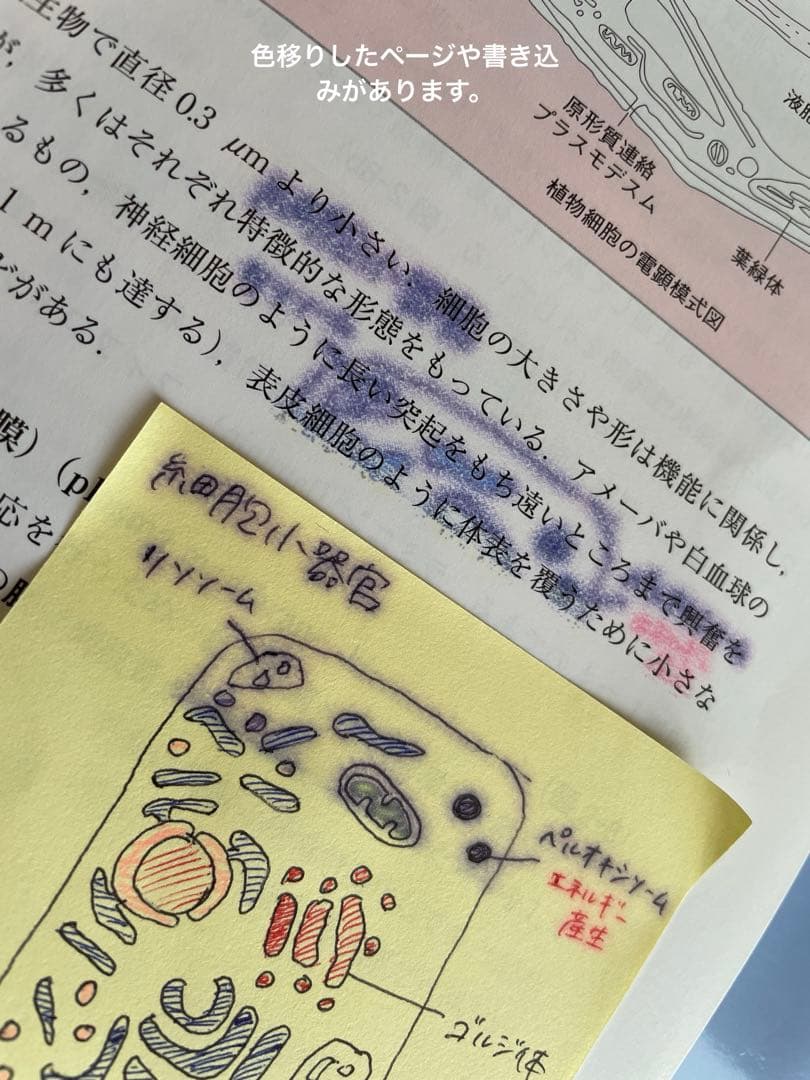 色移りしたページや書き込
みがあります。
生物で直径0.3 μmより小さい．細胞の大きさや形は機能に関係し，
が，多くはそれぞれ特徴的な形態をもっている．アメーバや白血球の
るもの，神経細胞のように長い突起をもち遠いところまで興奮を
1 mにも達する），表皮細胞のように体表を覆うために小さな
がある．
膜）（pl
応を
の
原形質連絡
プラスモデスム
液胞
葉緑体
植物細胞の電顕模式図
細胞小器官
リソソーム
ペルオキシソーム
エネルギー
産生
ゴルジ体